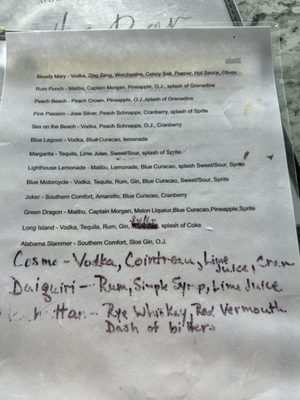 Bloody Mary - Vodka, Zing Zang, Worchestire, Celery Salt, Pepper, Hot Sauce, Olives
Rum Punch - Malibu, Captain Morgan, Pineapple, O.J., splash of Grenadine
Peach Beach - Peach Crown, Pineapple, O.J. splash of Grenadine
Pink Passion - Jose Silver, Peach Schnapps, Cranberry, splash of Sprite
Sex on the Beach - Vodka, Peach Schnapps, O.J., Cranberry
Blue Lagoon - Vodka, Blue Curacao, lemonade
Margarita - Tequila, Lime Juice, Sweet/Sour, splash of Sprite
Lighthouse Lemonade - Malibu, Lemonade, Blue Curacao, splash Sweet/Sour, Sprite
Blue Motorcycle - Vodka, Tequila, Rum, Gin, Blue Curacao, Sweet/Sour, Sprite
Joker - Southern Comfort, Amaretto, Blue Curacao, Cranberry
Green Dragon - Malibu, Captain Morgan, Melon Liqueur, Blue Curacao, Pineapple, Sprite
Long Island - Vodka, Tequila, Rum, Gin, splash of Coke
Alabama Slammer - Southern Comfort, Sloe Gin, O.J.
Cosmo - Vodka, Cointreau, Lime Juice, Cran
Daiquiri - Rum, Simple Syrup, Lime Juice
Rye Whiskey, Red Vermouth
Dash of bitters